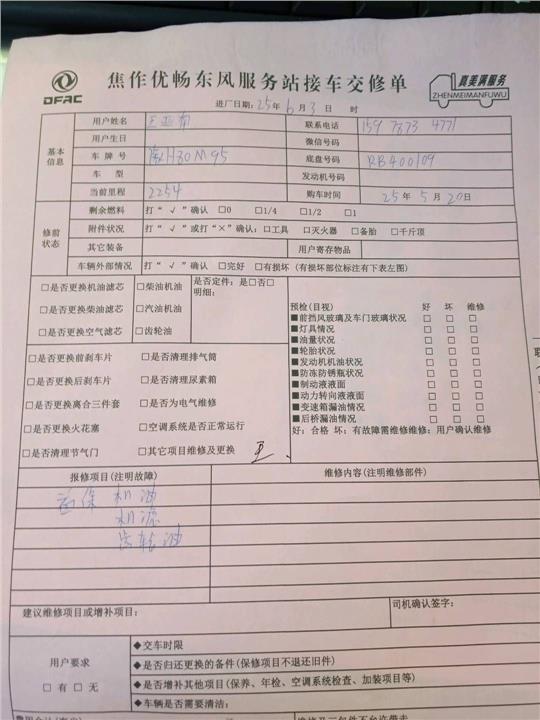 DFAC
焦作优畅东风服务站接车交修单
真美满服务
ZHENMEIMANFUWU
进厂日期：25年6月3日 时
基本信息
用户姓名 联系电话 159 7873 4771
用户生日 微信号码
车牌号 H30M95 底盘号码 RB400109
车型 发动机号码
当前里程 2254 购车时间 25年5月20日
修前状态
剩余燃料 打“√”确认 □0 □1/4 □1/2 □1
附件状况 打“√”或打“×”确认：□工具 □灭火器 □备胎 □千斤顶
其它装备 用户寄存物品
车辆外部情况 打“√”确认 □完好 □有损坏（有损坏部位标注有下表左图）
□是否更换机油滤芯 □柴油机油 是否定件：是□否□
明细：
□是否更换柴油滤芯 □汽油机油
□是否更换空气滤芯 □齿轮油
□是否更换前刹车片 □是否清理排气筒
□是否更换后刹车片 □是否清理尿素箱
□是否更换离合三件套 □是否为电气维修
□是否更换火花塞 □空调系统是否正常运行
□是否清理节气门 □其它项目维修及更换
预检(目视) 好 坏 维修
■前挡风玻璃及车门玻璃状况 □ □ □
■灯具情况 □ □ □
■油量状况 □ □ □
■轮胎状况 □ □ □
■发动机机油状况 □ □ □
■防冻防锈瓶状况 □ □ □
■制动液液面 □ □ □
■动力转向液液面 □ □ □
■变速箱漏油情况 □ □ □
■后桥漏油情况 □ □ □
好：合格 坏：有故障需维修维修：用户确认维修
报修项目(注明故障) 维修内容(注明维修部件)
首保 机油
机滤
齿轮油
建议维修项目或增补项目： 司机确认签字：
用户要求
□有 □无
◆交车时限
◆是否归还更换的备件(保修项目不退还旧件)
◆是否增补其他项目(保养、年检、空调系统检查、加装项目等)
◆车辆是否需要清洁：